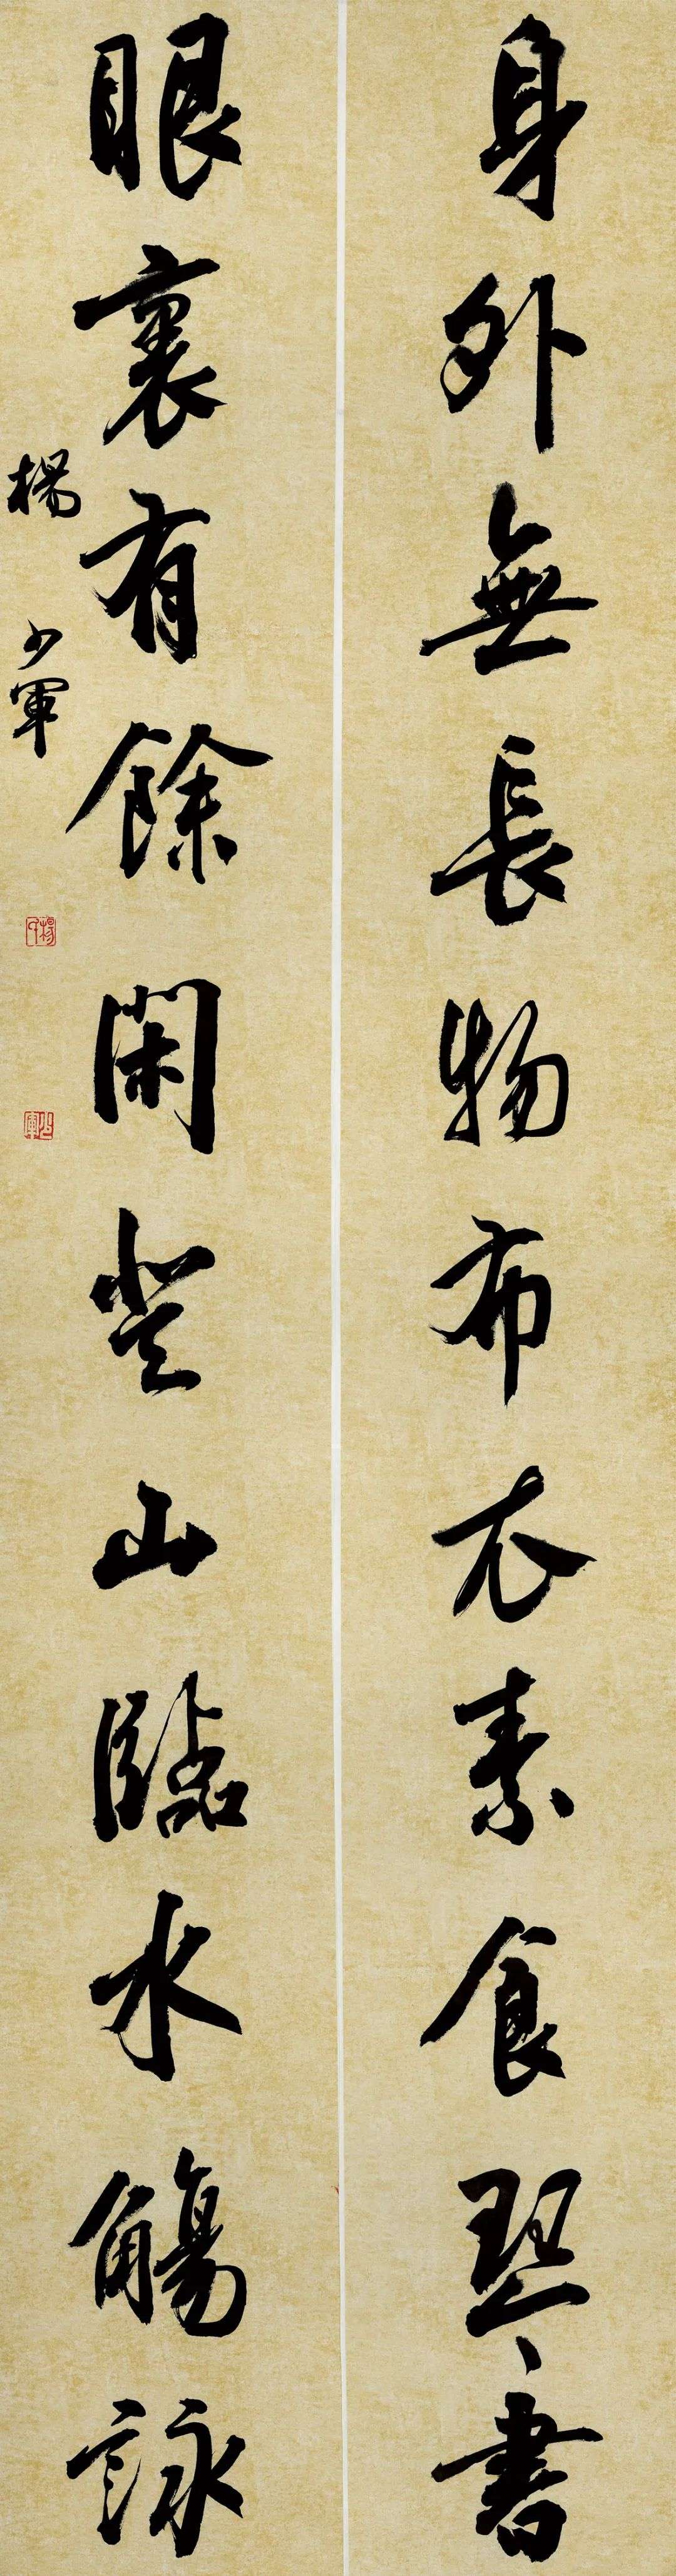 身外無長物布衣素食琴書
眼裏有餘閑登山臨水觴詠
楊少軍
楊
少軍